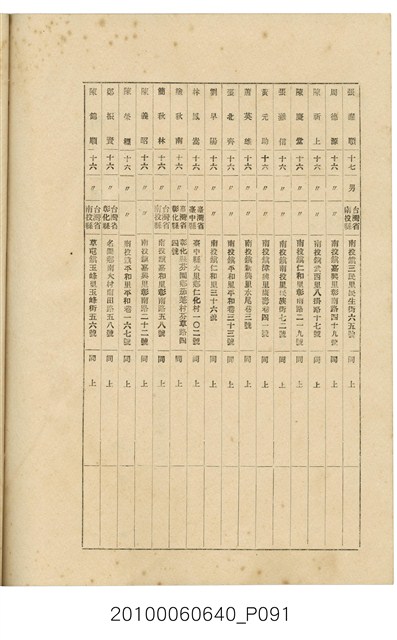 張慶順 十七 男 台灣省南投縣 南投鎮三民里民生街六五號 同上
周 源 十六 〃 〃 南投鎮嘉興里彰南路四十九號 同上
陳新上 十六 〃 〃 南投鎮武西里八卦路十七號 同上
陳慶堂 十六 〃 〃 南投鎮仁和里彰南路二一九號 同上
張 信 十六 〃 〃 南投鎮南投里民族街七二號 同上
黃元助 十六 〃 〃 南投鎮 里 巷四一號 同上
蕭英雄 十六 〃 〃 南投鎮 里永尾巷三號 同上
張北齊 十六 〃 〃 南投鎮平和里平和巷三十三號 同上
劉早陽 十六 〃 〃 南投鎮仁和里三十六號 同上
林鳳 十六 〃 臺灣省臺中縣 臺中縣大里鄉仁化村一〇二號 同上
秋南 十六 〃 臺灣省彰化縣 彰化縣芬園鄉 村芬草路四四號 同上
簡秋林 十六 〃 台灣省南投縣 南投鎮嘉和里彰南路五八號 同上
陳義昭 十六 〃 〃 南投鎮嘉興里彰南路二十二號 同上
陳榮 十六 〃 〃 南投鎮平和里平和巷一六七號 同上
鄭振賓 十六 〃 台灣省彰化縣 名間鄉南大村南田路五八號 同上
陳錦順 十六 〃 台灣省南投縣 草屯鎮玉峰里玉峰街五六號 同上
20100060640_P091